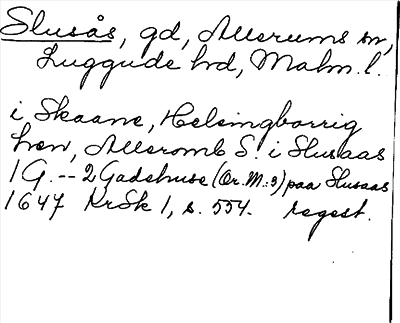 Slusås, gd, Allerums sn,
Luggude hd, Malm. l.
i Skaane, Helsingborrig
Len, Alleromb S. i Slusaas
1 G. -- 2 Gadehuse (Or. M.: 3) paa Slusaas
1647 KrSk 1, s. 554. regest.